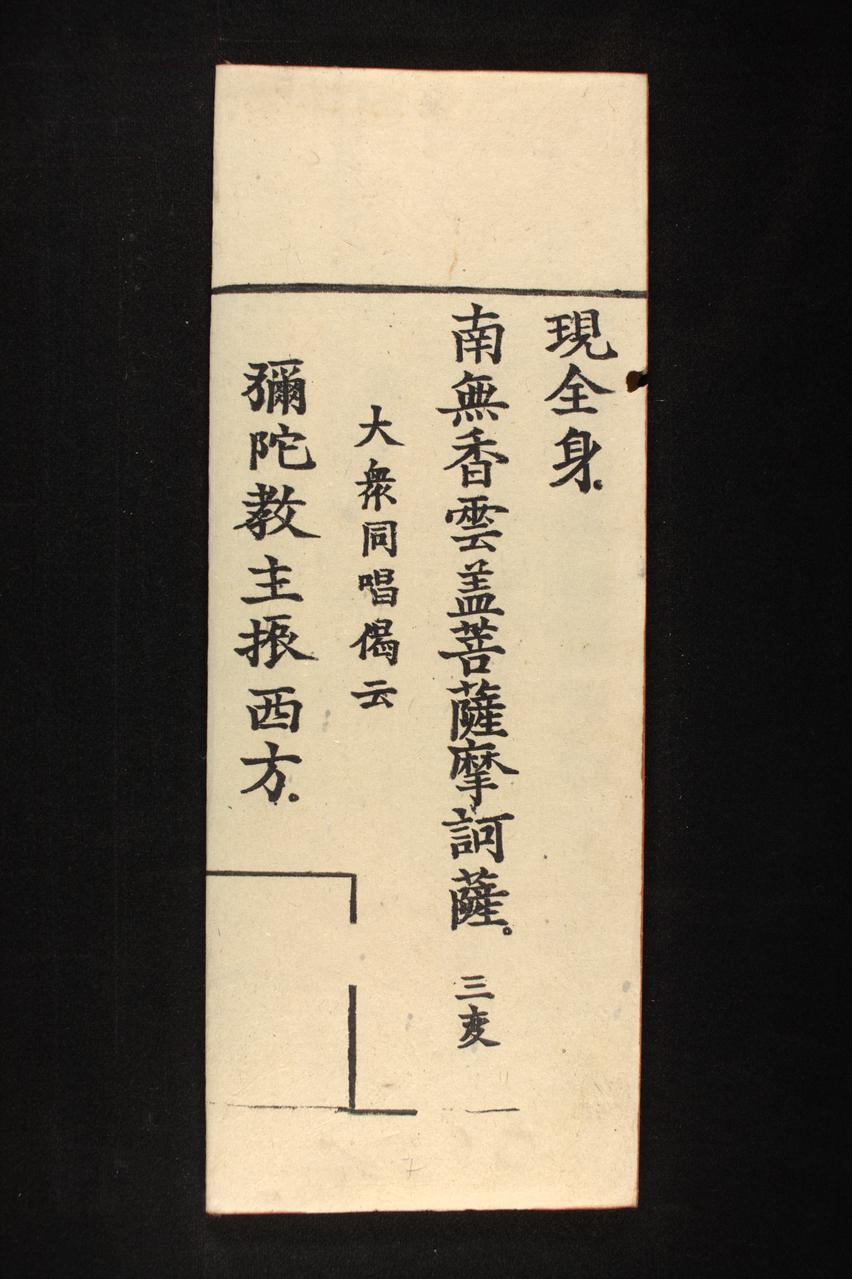 現全身。
南無香雲盖菩薩摩訶薩。三変
大衆同唱偈云
彌陀教主振西方。